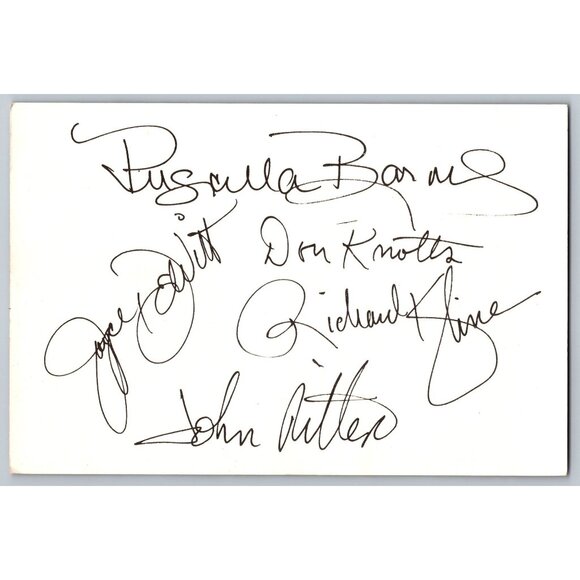 Priscilla Barnes
Joyce DeWitt
Don Knotts
Richard Kline
John Ritter